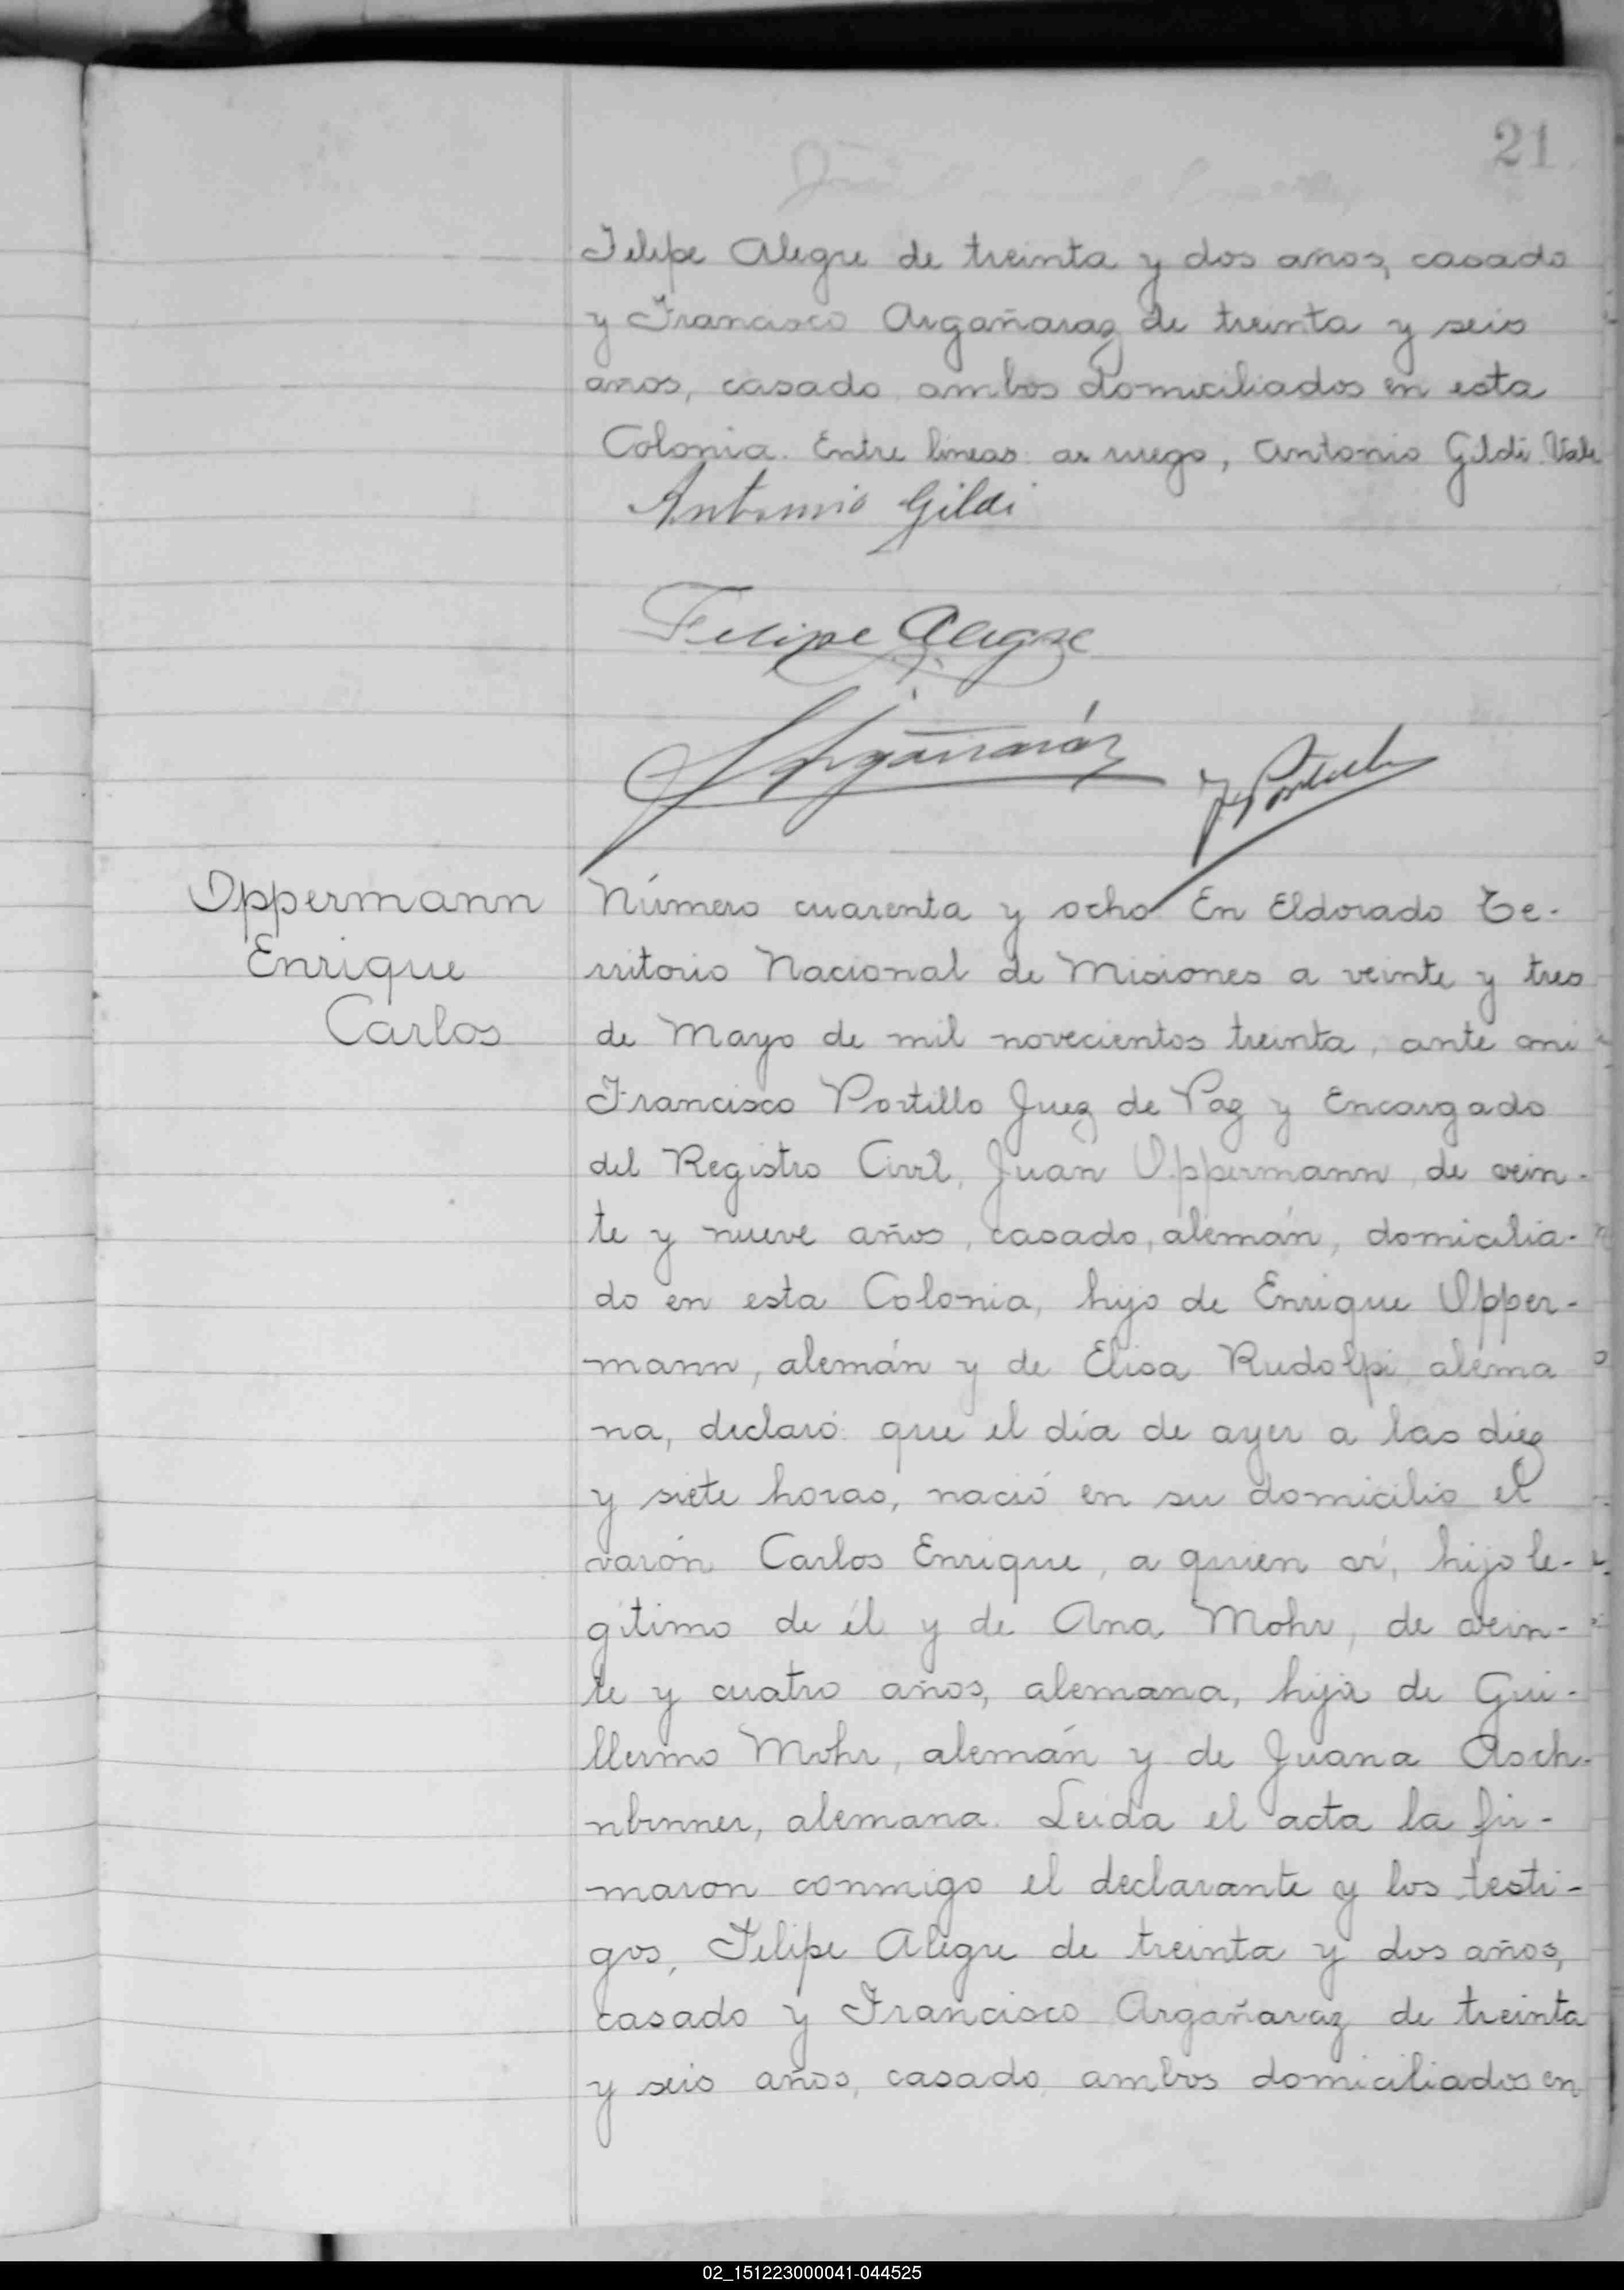 21
Felipe Alegre de treinta y dos años, casado
y Francisco Argañaraz de treinta y seis
años, casado ambos domiciliados en esta
Colonia. Entre lineas: a ruego, Antonio Gildi. Vale
Antonio Gildi
Felipe Alegre
Argañaráz
Oppermann
Enrique
Carlos
Número cuarenta y ocho. En Eldorado Te-
rritorio Nacional de Misiones a veinte y tres
de Mayo de mil novecientos treinta, ante mi
Francisco Portillo Juez de Paz y Encargado
del Registro Civil, Juan Oppermann, de vein-
te y nueve años, casado, alemán, domicilia-
do en esta Colonia, hijo de Enrique Opper-
mann, alemán y de Elisa Rudolpi, alema
na, declaró: que el día de ayer a las diez
y siete horas, nació en su domicilio el
varón Carlos Enrique, a quien ví, hijo le-
gítimo de él y de Ana Mohr, de vein-
te y cuatro años, alemana, hija de Gui-
llermo Mohr, alemán y de Juana Asch-
nbrnner, alemana. Leida el acta la fir-
maron conmigo el declarante y los testi-
gos, Felipe Alegre de treinta y dos años,
casado y Francisco Argañaraz de treinta
y seis años, casado, ambos domiciliados en
02_151223000041-044525